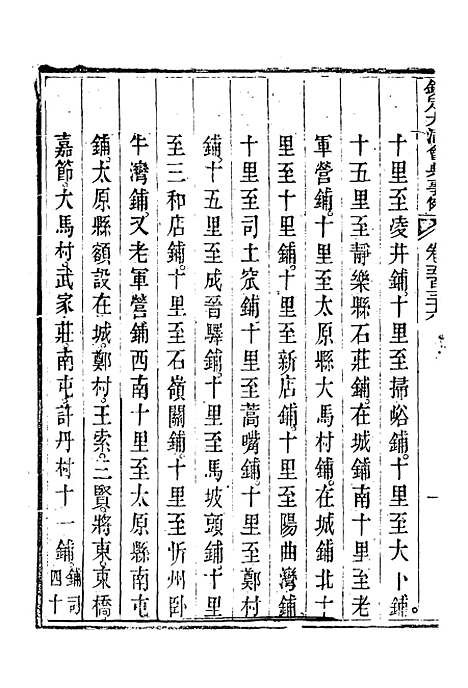 欽定大清會典事例 卷六百三十六
十里至凌井鋪。十里至掃峪鋪。十里至大卜鋪。
十五里至靜樂縣石莊鋪。在城鋪南十里至老
軍營鋪。十里至太原縣大馬村鋪。在城鋪北十
里至十里鋪。十里至新店鋪。十里至陽曲灣鋪。
十里至司土窊鋪。十里至蒿嘴鋪。十里至鄭村
鋪。十五里至成晉驛鋪。十里至馬坡頭鋪。十里
至三和店鋪。十里至石嶺關鋪。十里至忻州臥
牛灣鋪。又老軍營鋪西南十里至太原縣南屯
鋪。太原縣額設在城。鄭村。王索。三賢。將東。東橋。
嘉節。大馬村。武家莊。南屯。許丹村十一鋪。鋪司
四十